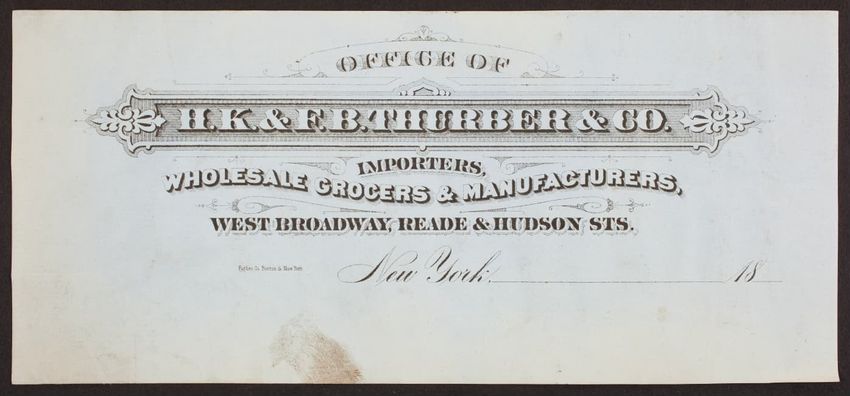 OFFICE OF
H.K. & F.B. THURBER & CO.
IMPORTERS,
WHOLESALE GROCERS & MANUFACTURERS,
WEST BROADWAY, READE & HUDSON STS.
Forbes Co. Boston & New York
New York 18